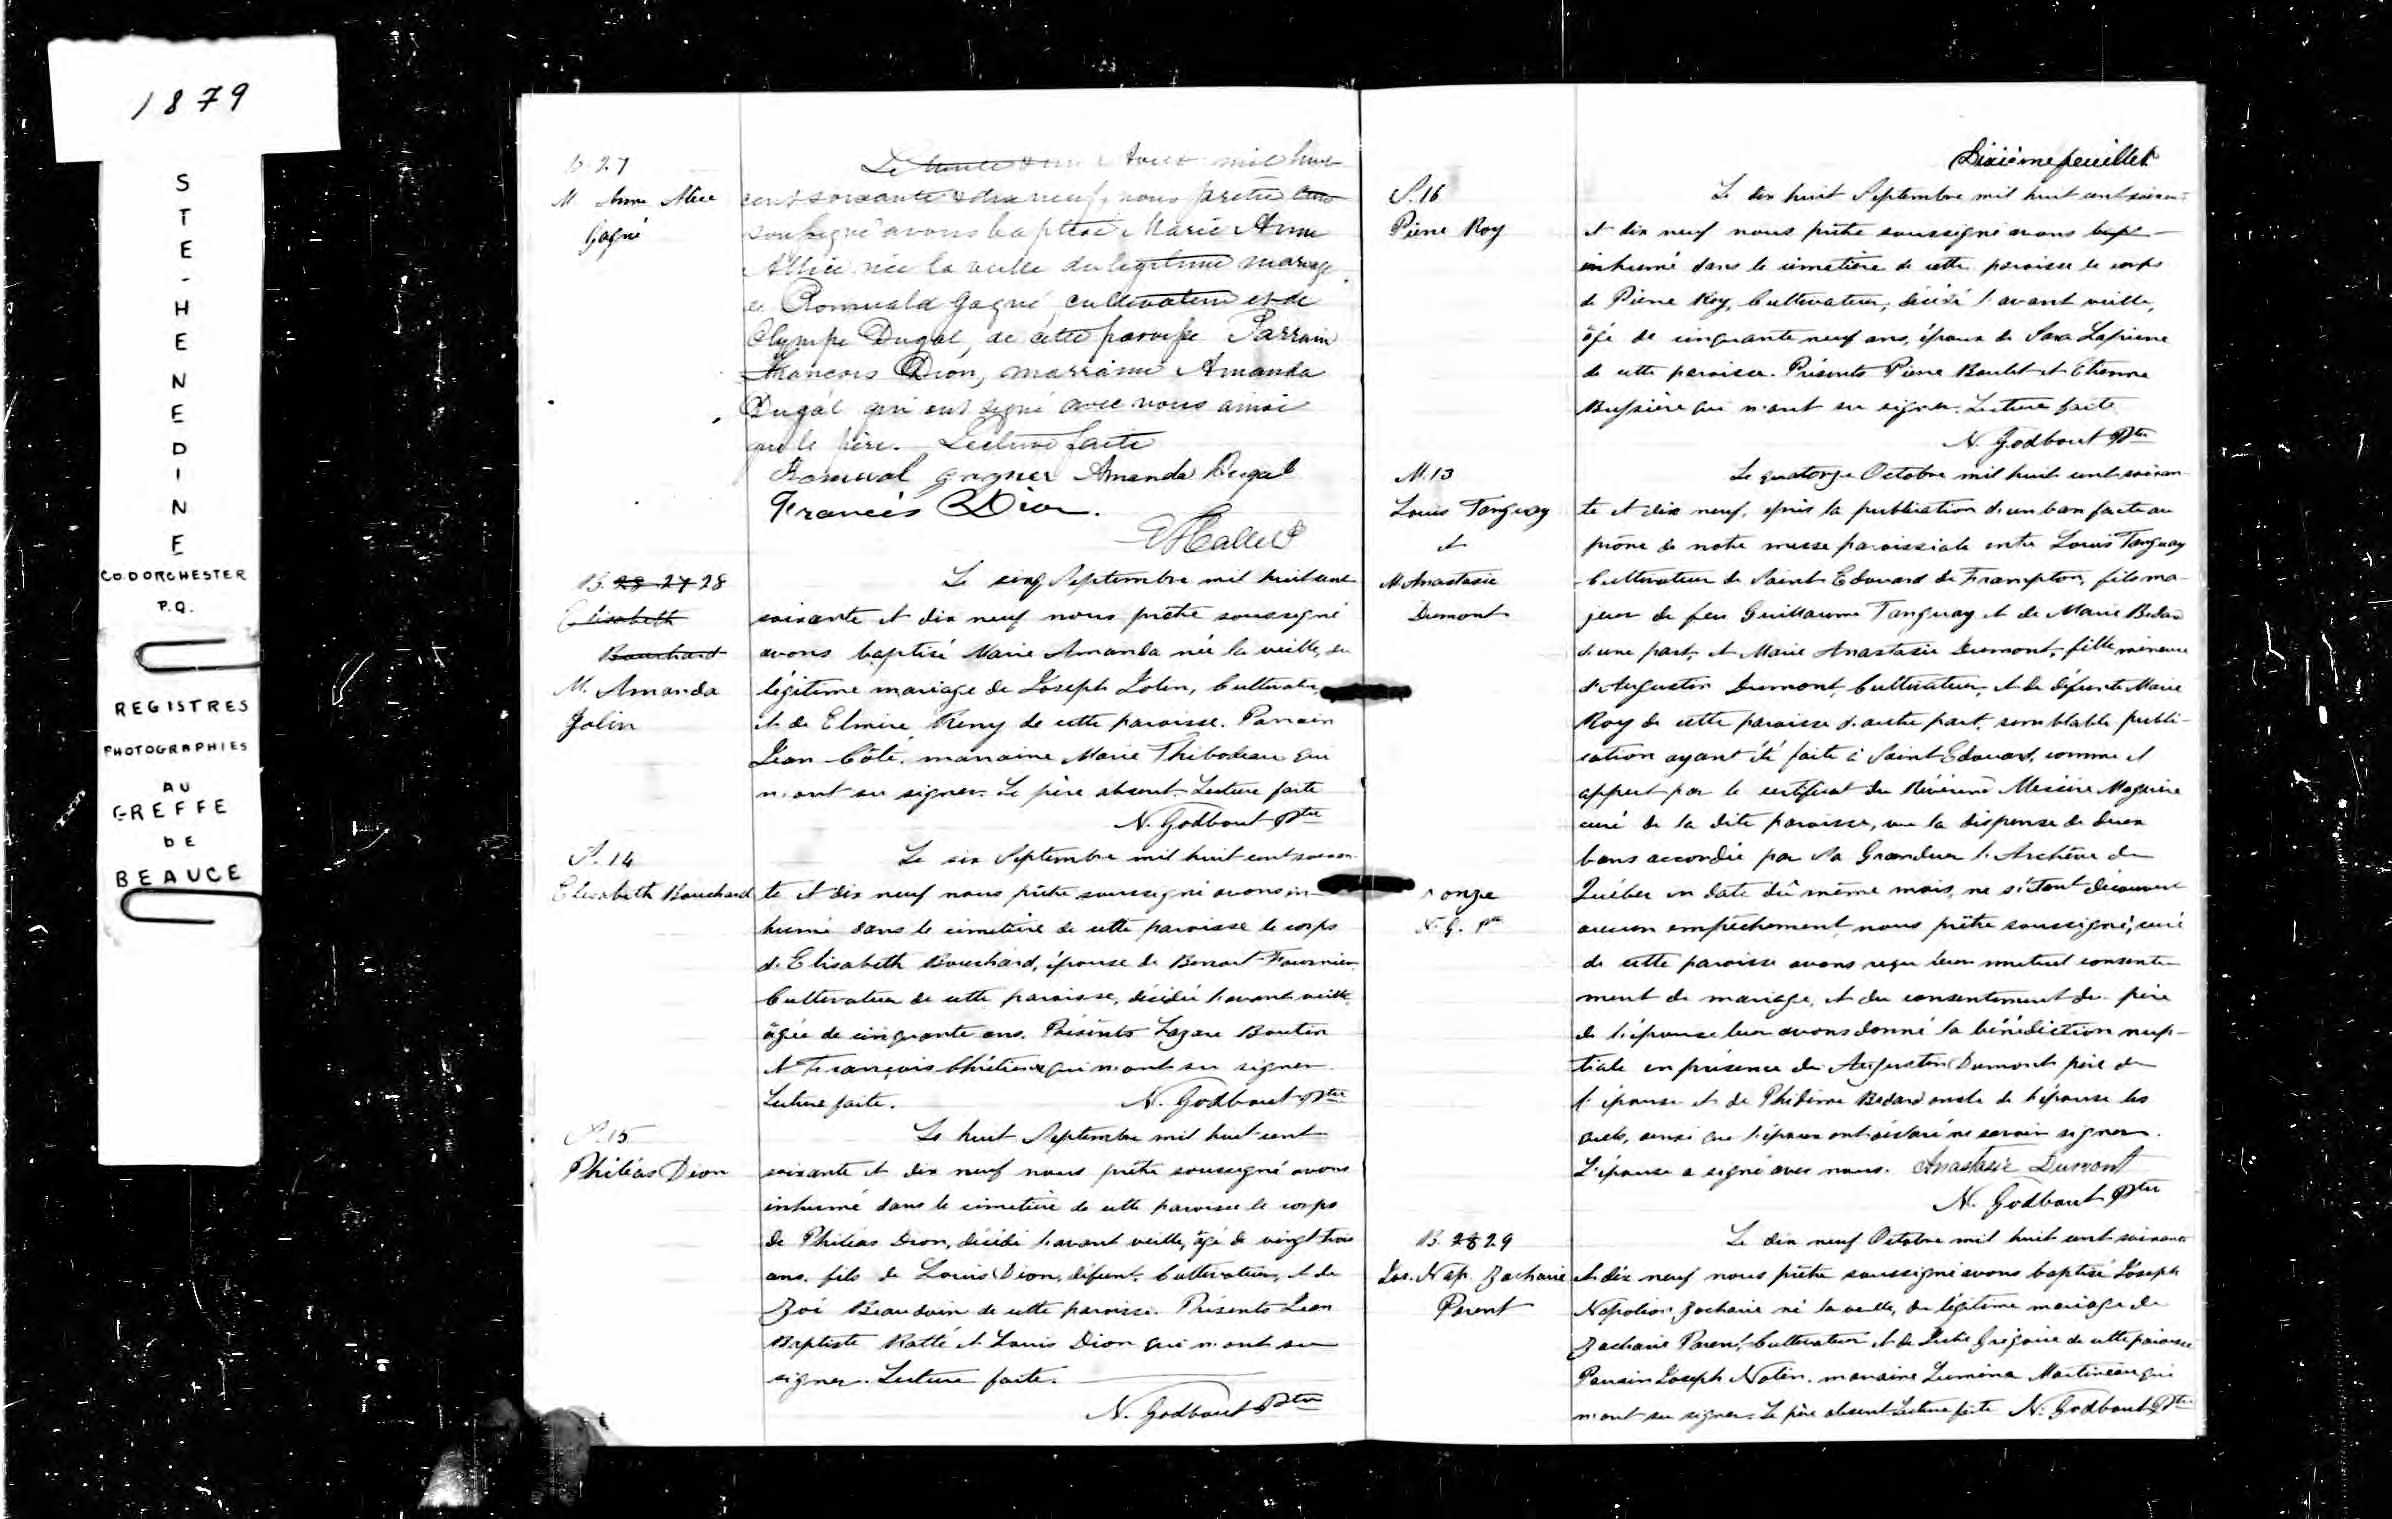 1879
STE-HENEDINE
CO. DORCHESTER
P.Q.
REGISTRES
PHOTOGRAPHIES
AU
GREFFE
DE
BEAUCE
B. 27
M Anne Alice
Gagné
Le trente et un Aout mil huit
cent soixante et dix neuf, nous prêtre
soussigné avons baptisé Marie Anne
Allice née la veille du légitime mariage
de Romuald Gagné, cultivateur et de
Olympe Dugal, de cette paroisse Parrain
Francois Dion, marraine Amanda
Dugál qui ont signé avec nous ainsi
que le père. Lecture faite
Romuval gagner Amanda Dugal
Francis Dion.
B. 28 27 28
Elisabeth
Bouchard
M. Amanda
Jolin
Le cinq Septembre mil huit cent
soixante et dix neuf nous prêtre soussigné
avons baptisé Marie Amanda née la veille, du
légitime mariage de Joseph Jolin, Cultivateur
et de Elmire Remy de cette paroisse. Parrain
Jean Côté, marraine Marie Thibodeau qui
n'ont su signer. Le père absent. Lecture faite
N. Godbout Ptre
S. 14
Elisabeth Bouchard
Le six Septembre mil huit cent soixan-
te et dix neuf nous prêtre soussigné avons in-
humé dans le cimetière de cette paroisse le corps
de Elisabeth Bouchard, épouse de Fournier
Cultivateur de cette paroisse, décédée l'avant veille
âgée de cinquante ans. Présents Lazare Boutin
et François Chrétien qui n'ont su signer.
Lecture faite. N. Godbout Ptre
S. 15
Philéas Dion
Le huit Septembre mil huit cent
soixante et dix neuf nous prêtre soussigné avons
inhumé dans le cimetière de cette paroisse le corps
de Philéas Dion, décédé l'avant veille, âgé de vingt trois
ans, fils de Louis Dion, défunt, Cultivateur, et de
Zoé Beaudoin de cette paroisse. Présents Jean
Baptiste Ratté et Louis Dion qui n'ont su
signer. Lecture faite.
N. Godbout Ptre
Dixième feuillet
S. 16
Pierre Roy
Le dix huit Septembre mil huit cent soixan-
et dix neuf nous prêtre soussigné avons bapt
inhumé dans le cimetière de cette paroisse le corps
de Pierre Roy, Cultivateur, décédé l'avant veille,
âgé de cinquante neuf ans, époux de Sara Lapierre
de cette paroisse. Présents Pierre Boulet et Etienne
Bussière qui n'ont su signer. Lecture faite
N. Godbout Ptre
M. 13
Louis Tanguay
et
M. Anastasie
Dumont
Le quatorze Octobre mil huit cent soixan-
te et dix neuf, après la publication d'un ban faite au
prône de notre messe paroissiale entre Louis Tanguay
Cultivateur de Saint Edouard de Frampton, fils ma-
jeur de feu Guillaume Tanguay et de Marie Bedard
d'une part, et Marie Anastasie Dumont, fille mineure
d'Augustin Dumont, Cultivateur, et de défunte Marie
Roy de cette paroisse d'autre part, semblable publi-
cation ayant été faite à Saint Edouard, comme il
appert par le certificat du Révérend Messire Maguire
curé de la dite paroisse, vu la dispense de deux
bans accordée par Sa Grandeur l'Archêve de
Québec en date du même mois, ne s'étant découvert
aucun empêchement nous prêtre soussigné, curé
de cette paroisse avons reçu leur mutuel consente-
ment de mariage, et du consentement du père
de l'épouse leur avons donné la bénédiction nup-
tiale en présence de Augustin Dumont père de
l'épouse et de Bedard oncle de l'épouse les
quels, ainsi que l'époux ont déclaré ne savoir signer.
L'épouse a signé avec nous. Anastasie Dumont
N. Godbout Ptre
^ onze
N. G. Ptre
B. 28 29
Jos. Nap. Zacharie
Parent
Le dix neuf Octobre mil huit cent soixante
et dix neuf nous prêtre soussigné avons baptisé Joseph
Napoléon Zacharie né la veille, du légitime mariage de
Zacharie Parent, Cultivateur et de Grégoire de cette paroisse
Parrain Joseph Nolin, marraine Lumina Martineau qui
n'ont su signer. Le père absent Lecture faite N. Godbout Ptre